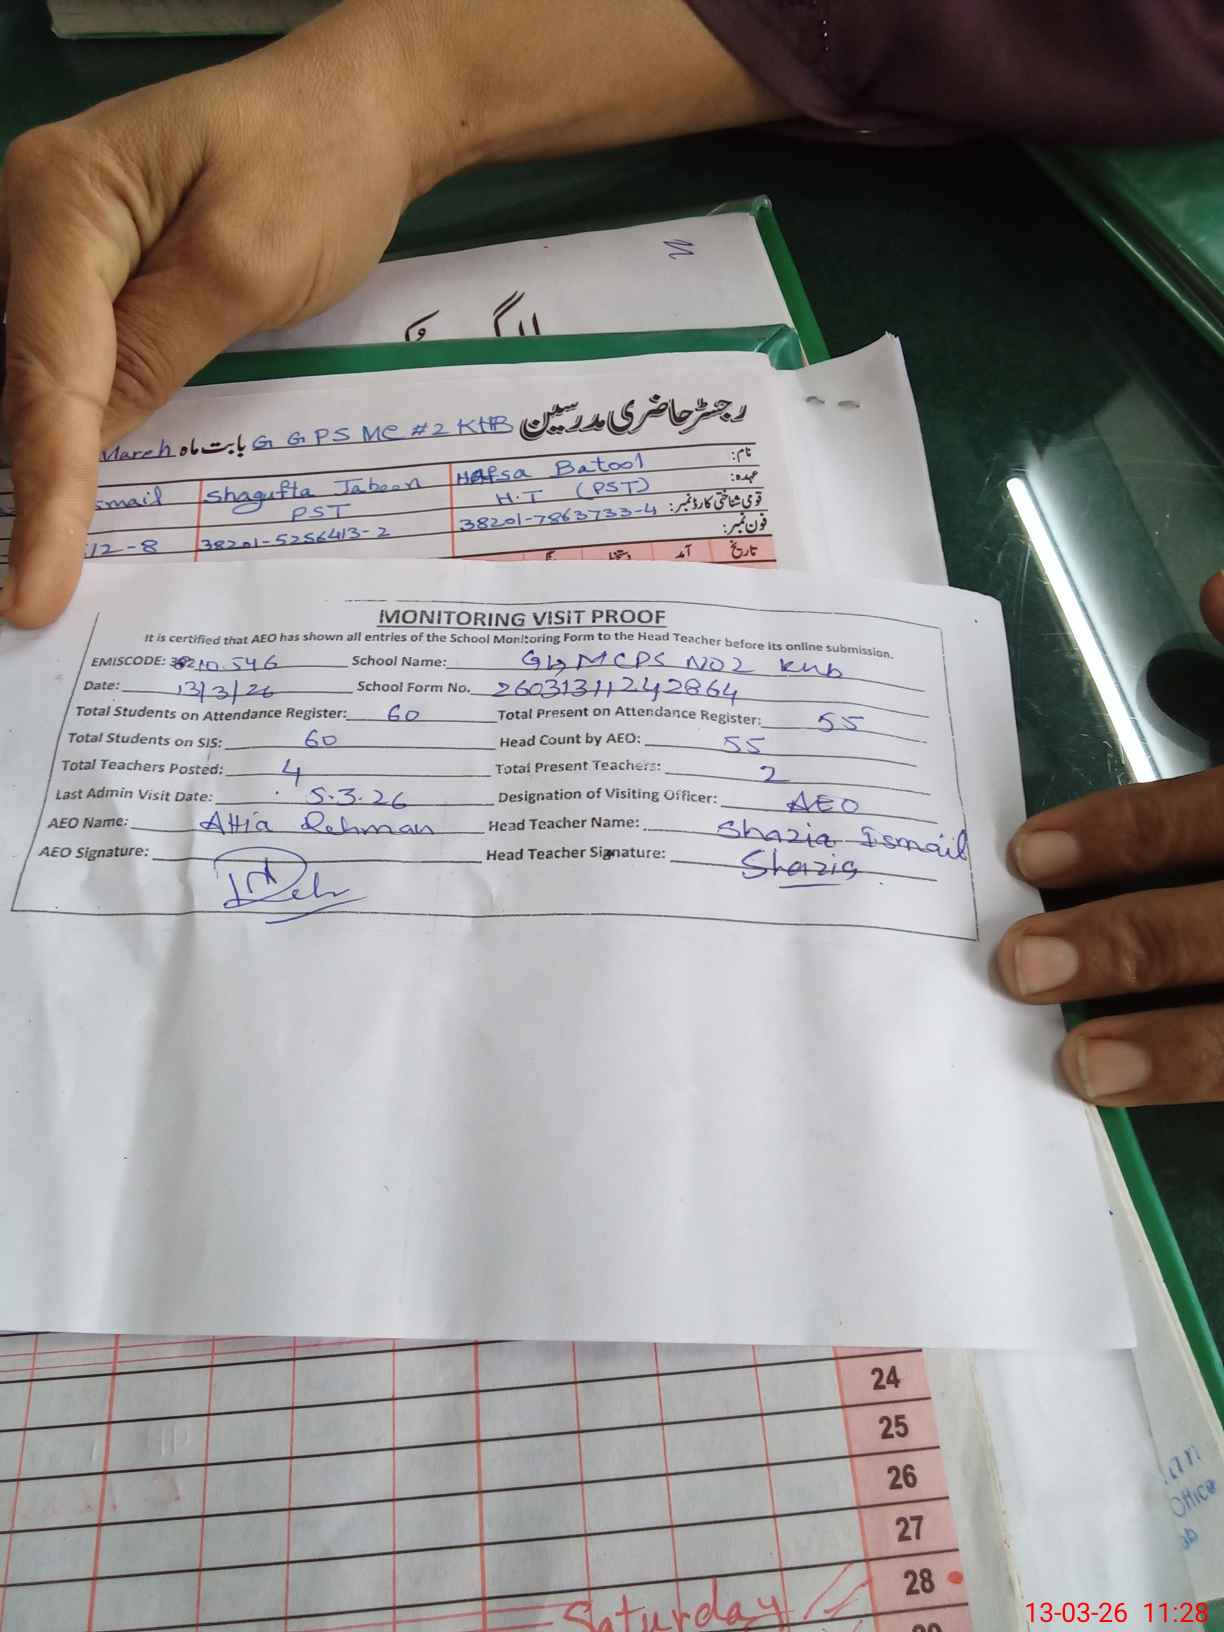 رجسٹر حاضری مدرسین
G GPS MC #2 KHB بابت ماہ March
نام: Hafsa Batool Shagufta Jabeen smail
عہدہ: H.T (PST) PST
قومی شناختی کارڈ نمبر: 38201-7863733-4 38201-5256413-2 12-8
فون نمبر:
تاریخ آمد
MONITORING VISIT PROOF
It is certified that AEO has shown all entries of the School Monitoring Form to the Head Teacher before its online submission.
EMISCODE: 38210546 School Name: GG MCPS NO2 Khb
Date: 13/3/26 School Form No. 26031311242864
Total Students on Attendance Register: 60 Total Present on Attendance Register: 55
Total Students on SIS: 60 Head Count by AEO: 55
Total Teachers Posted: 4 Total Present Teachers: 2
Last Admin Visit Date: 5.3.26 Designation of Visiting Officer: AEO
AEO Name: Attia Rehman Head Teacher Name: Shazia Ismail
AEO Signature: Head Teacher Signature: Shazia
24
25
26
27
28
Saturday
Office
13-03-26 11:28